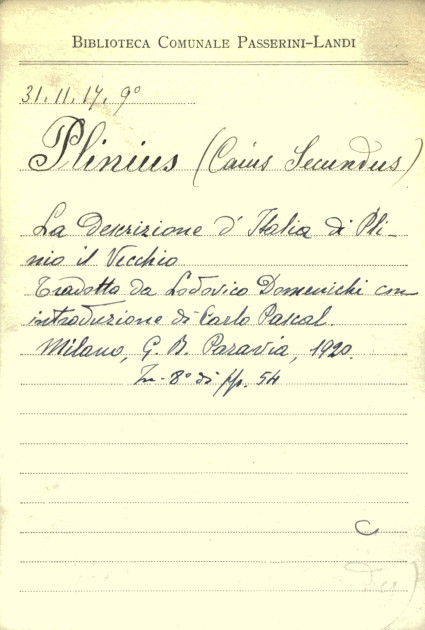 BIBLIOTECA COMUNALE PASSERINI-LANDI
31.11.17.9°
Plinius (Caius Secundus)
La Descrizione d'Italia di Pli-
nio il Vecchio
Tradotta da Lodovico Domenichi con
introduzione di Carlo Pascal.
Milano, G. B. Paravia, 1920.
In-8° di pp. 54
C